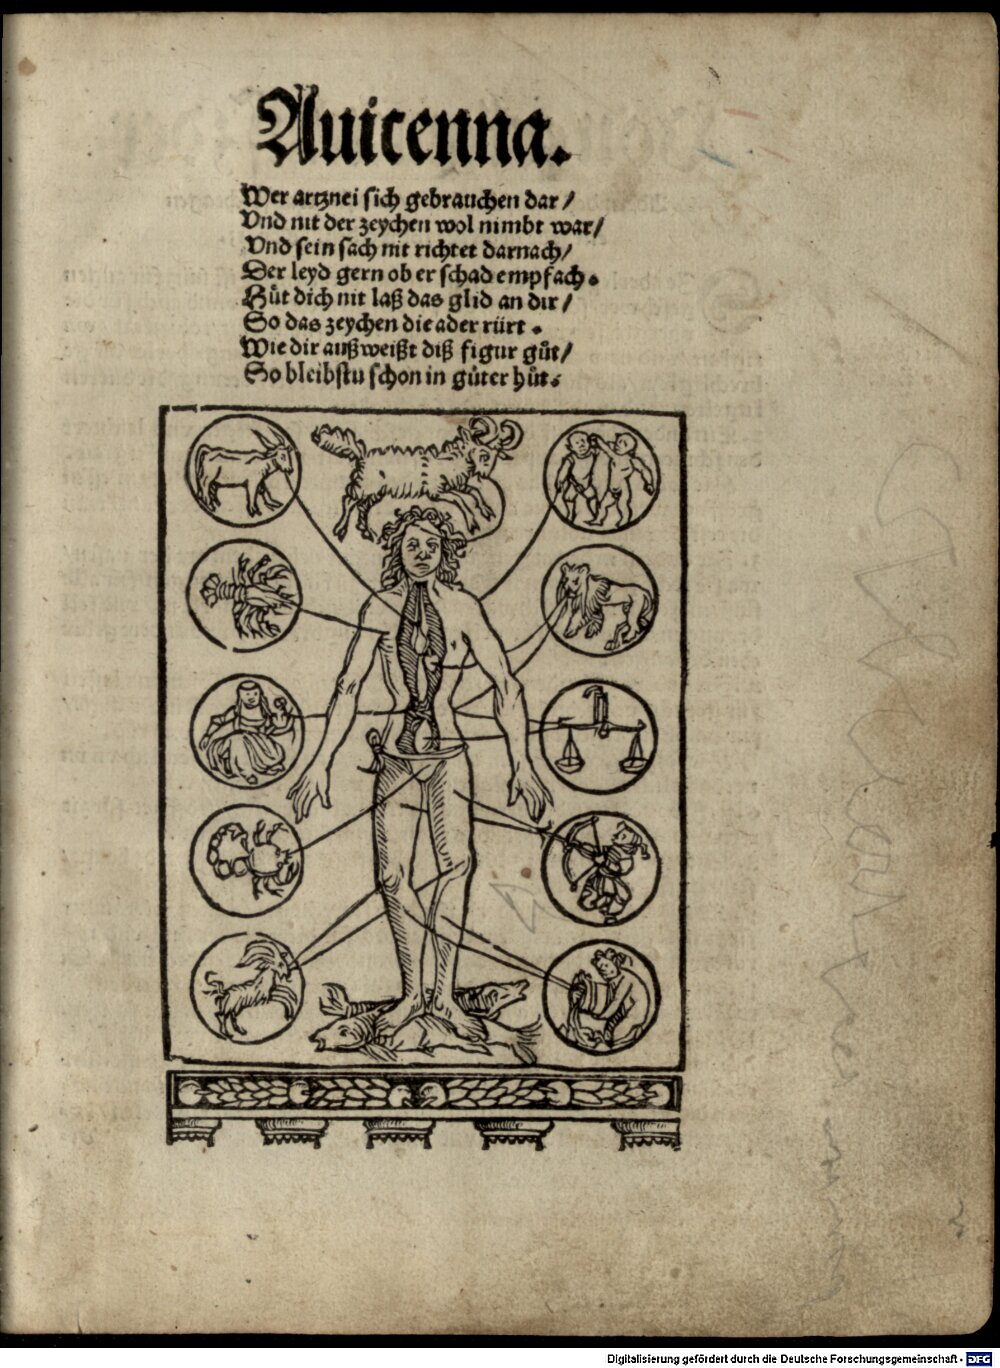 Auicenna.
Wer artznei sich gebrauchen dar /
Vnd nit der zeychen wol nimbt war /
Vnd sein sach nit richtet darnach /
Der leyd gern ob er schad empfach.
Hůt dich nit laß das glid an dir /
So das zeychen die ader rürt.
Wie dir außweißt diß figur gůt /
So bleibstu schon in gůter hůt.
Digitalisierung gefördert durch die Deutsche Forschungsgemeinschaft - DFG